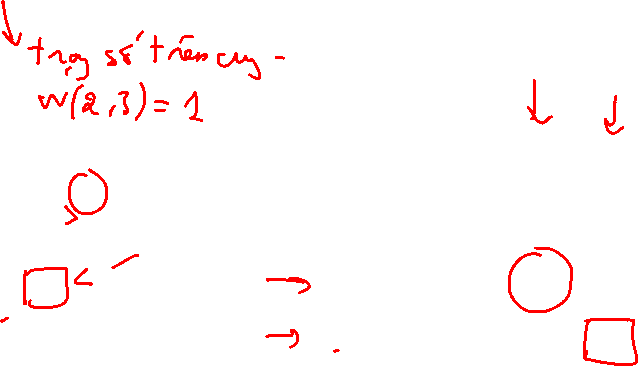 trọng số trên cung
w(2,3)=1